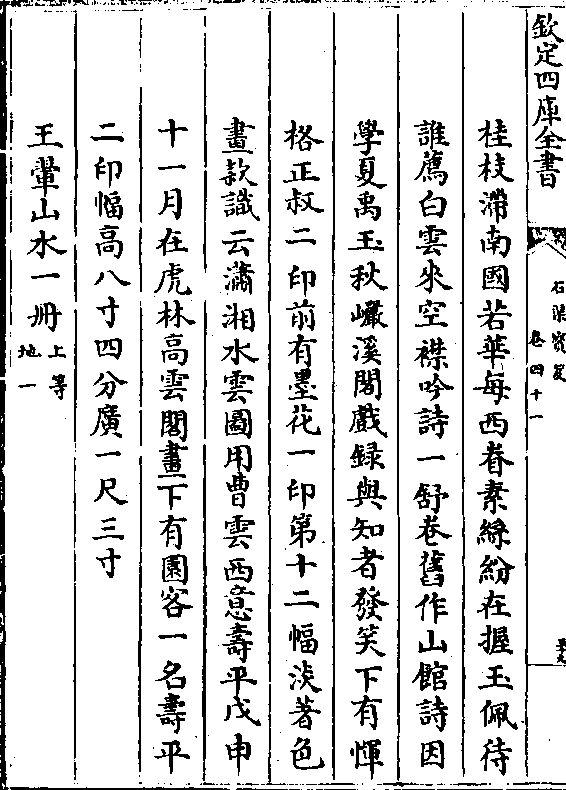 欽定四庫全書
石渠寳笈
卷四十一
桂枝滯南國若華每西眷素絲紛在握玉佩待
誰薦白雲來空襟吟詩一舒卷舊作山館詩因
學夏禹玉秋巘溪閣戲録與知者發笑下有惲
格正叔二印前有墨花一印第十二幅淡著色
畫款識云瀟湘水雲圖用曹雲西意壽平戊申
十一月在虎林高雲閣畫下有園客一名壽平
二印幅高八寸四分廣一尺三寸
王翬山水一册
上等
地一